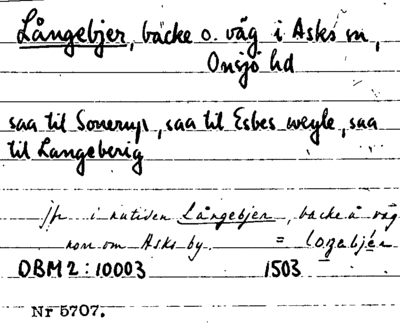 Långebjer, backe o. väg i Asks sn,
Onsjö hd
saa til Soneryp, saa til Esbes weyle, saa
til Langeberig
jfr i nutiden Långebjer, backe å väg
norr om Asks by. = lozabjér
DBM 2:10003 1503
Nr 5707.